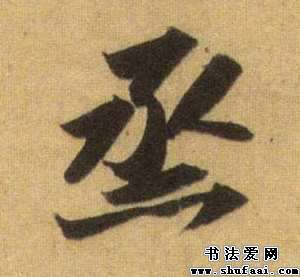 丞
书法爱网
www.shufaai.com